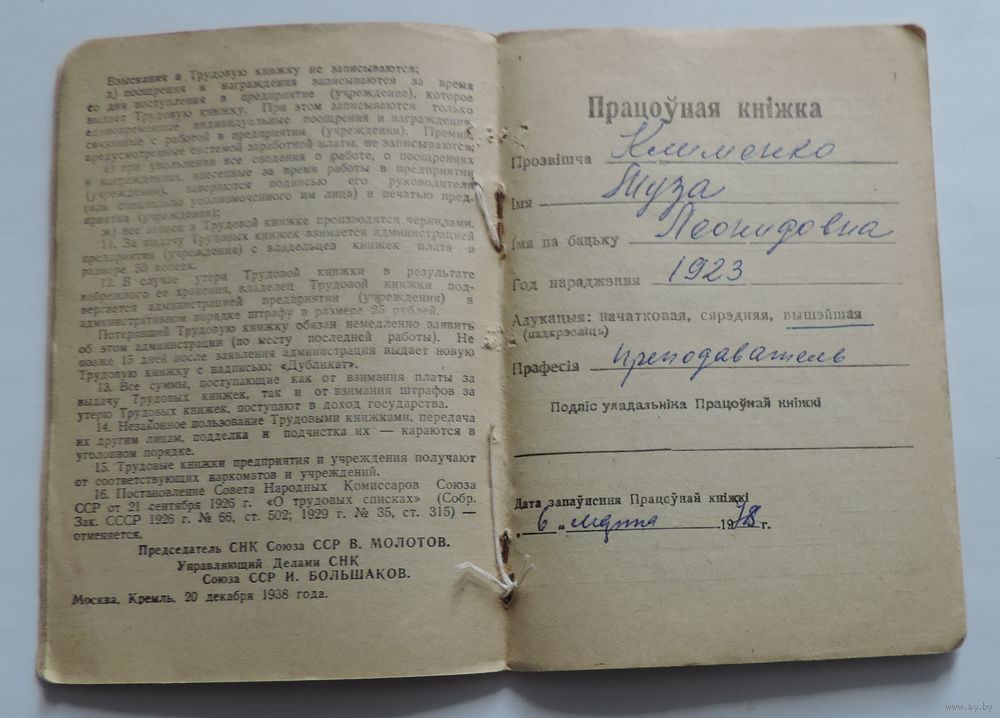 Взыскания в Трудовую книжку не записываются;
д) поощрения и награждения записываются за время
со дня поступления в предприятие (учреждение), которое
выдает Трудовую книжку. При этом записываются только
единовременные индивидуальные поощрения и награждения,
связанные с работой в предприятии (учреждении). Премии,
предусмотренные системой заработной платы, не записываются;
е) при увольнении все сведения о работе, о поощрениях
и награждениях, внесенные за время работы в предприятии
(учреждении), заверяются подписью его руководителя
(или специально уполномоченного им лица) и печатью пред-
приятия (учреждения);
ж) все записи в Трудовой книжке производятся чернилами.
11. За выдачу Трудовых книжек взимается администрацией
предприятия (учреждения) с владельцев книжек плата в
размере 50 копеек.
12. В случае утери Трудовой книжки в результате
небрежного ее хранения, владелец Трудовой книжки под-
вергается администрацией предприятия (учреждения) в
административном порядке штрафу в размере 25 рублей.
Потерявший Трудовую книжку обязан немедленно заявить
об этом администрации (по месту последней работы). Не
позже 15 дней после заявления администрация выдает новую
Трудовую книжку с надписью: «Дубликат».
13. Все суммы, поступающие как от взимания платы за
выдачу Трудовых книжек, так и от взимания штрафов за
утерю Трудовых книжек, поступают в доход государства.
14. Незаконное пользование Трудовыми книжками, передача
их другим лицам, подделка и подчистка их — караются в
уголовном порядке.
15. Трудовые книжки предприятия и учреждения получают
от соответствующих наркоматов и учреждений.
16. Постановление Совета Народных Комиссаров Союза
ССР от 21 сентября 1926 г. «О трудовых списках» (Собр.
Зак. СССР 1926 г. № 66, ст. 502; 1929 г. № 35, ст. 315) —
отменяется.
Председатель СНК Союза ССР В. МОЛОТОВ.
Управляющий Делами СНК
Союза ССР И. БОЛЬШАКОВ.
Москва, Кремль, 20 декабря 1938 года.
Працоўная кніжка
Прозвішча Клименко
Імя Муза
Імя па бацьку Леонидовна
Год нараджэння 1923
Адукацыя: пачатковая, сярэдняя, вышэйшая
(падкрэсліць)
Прафесія преподаватель
Подпіс уладальніка Працоўнай кніжкі
Дата запаўнення Працоўнай кніжкі
„6„ марта 1948 г.
www.ay.by